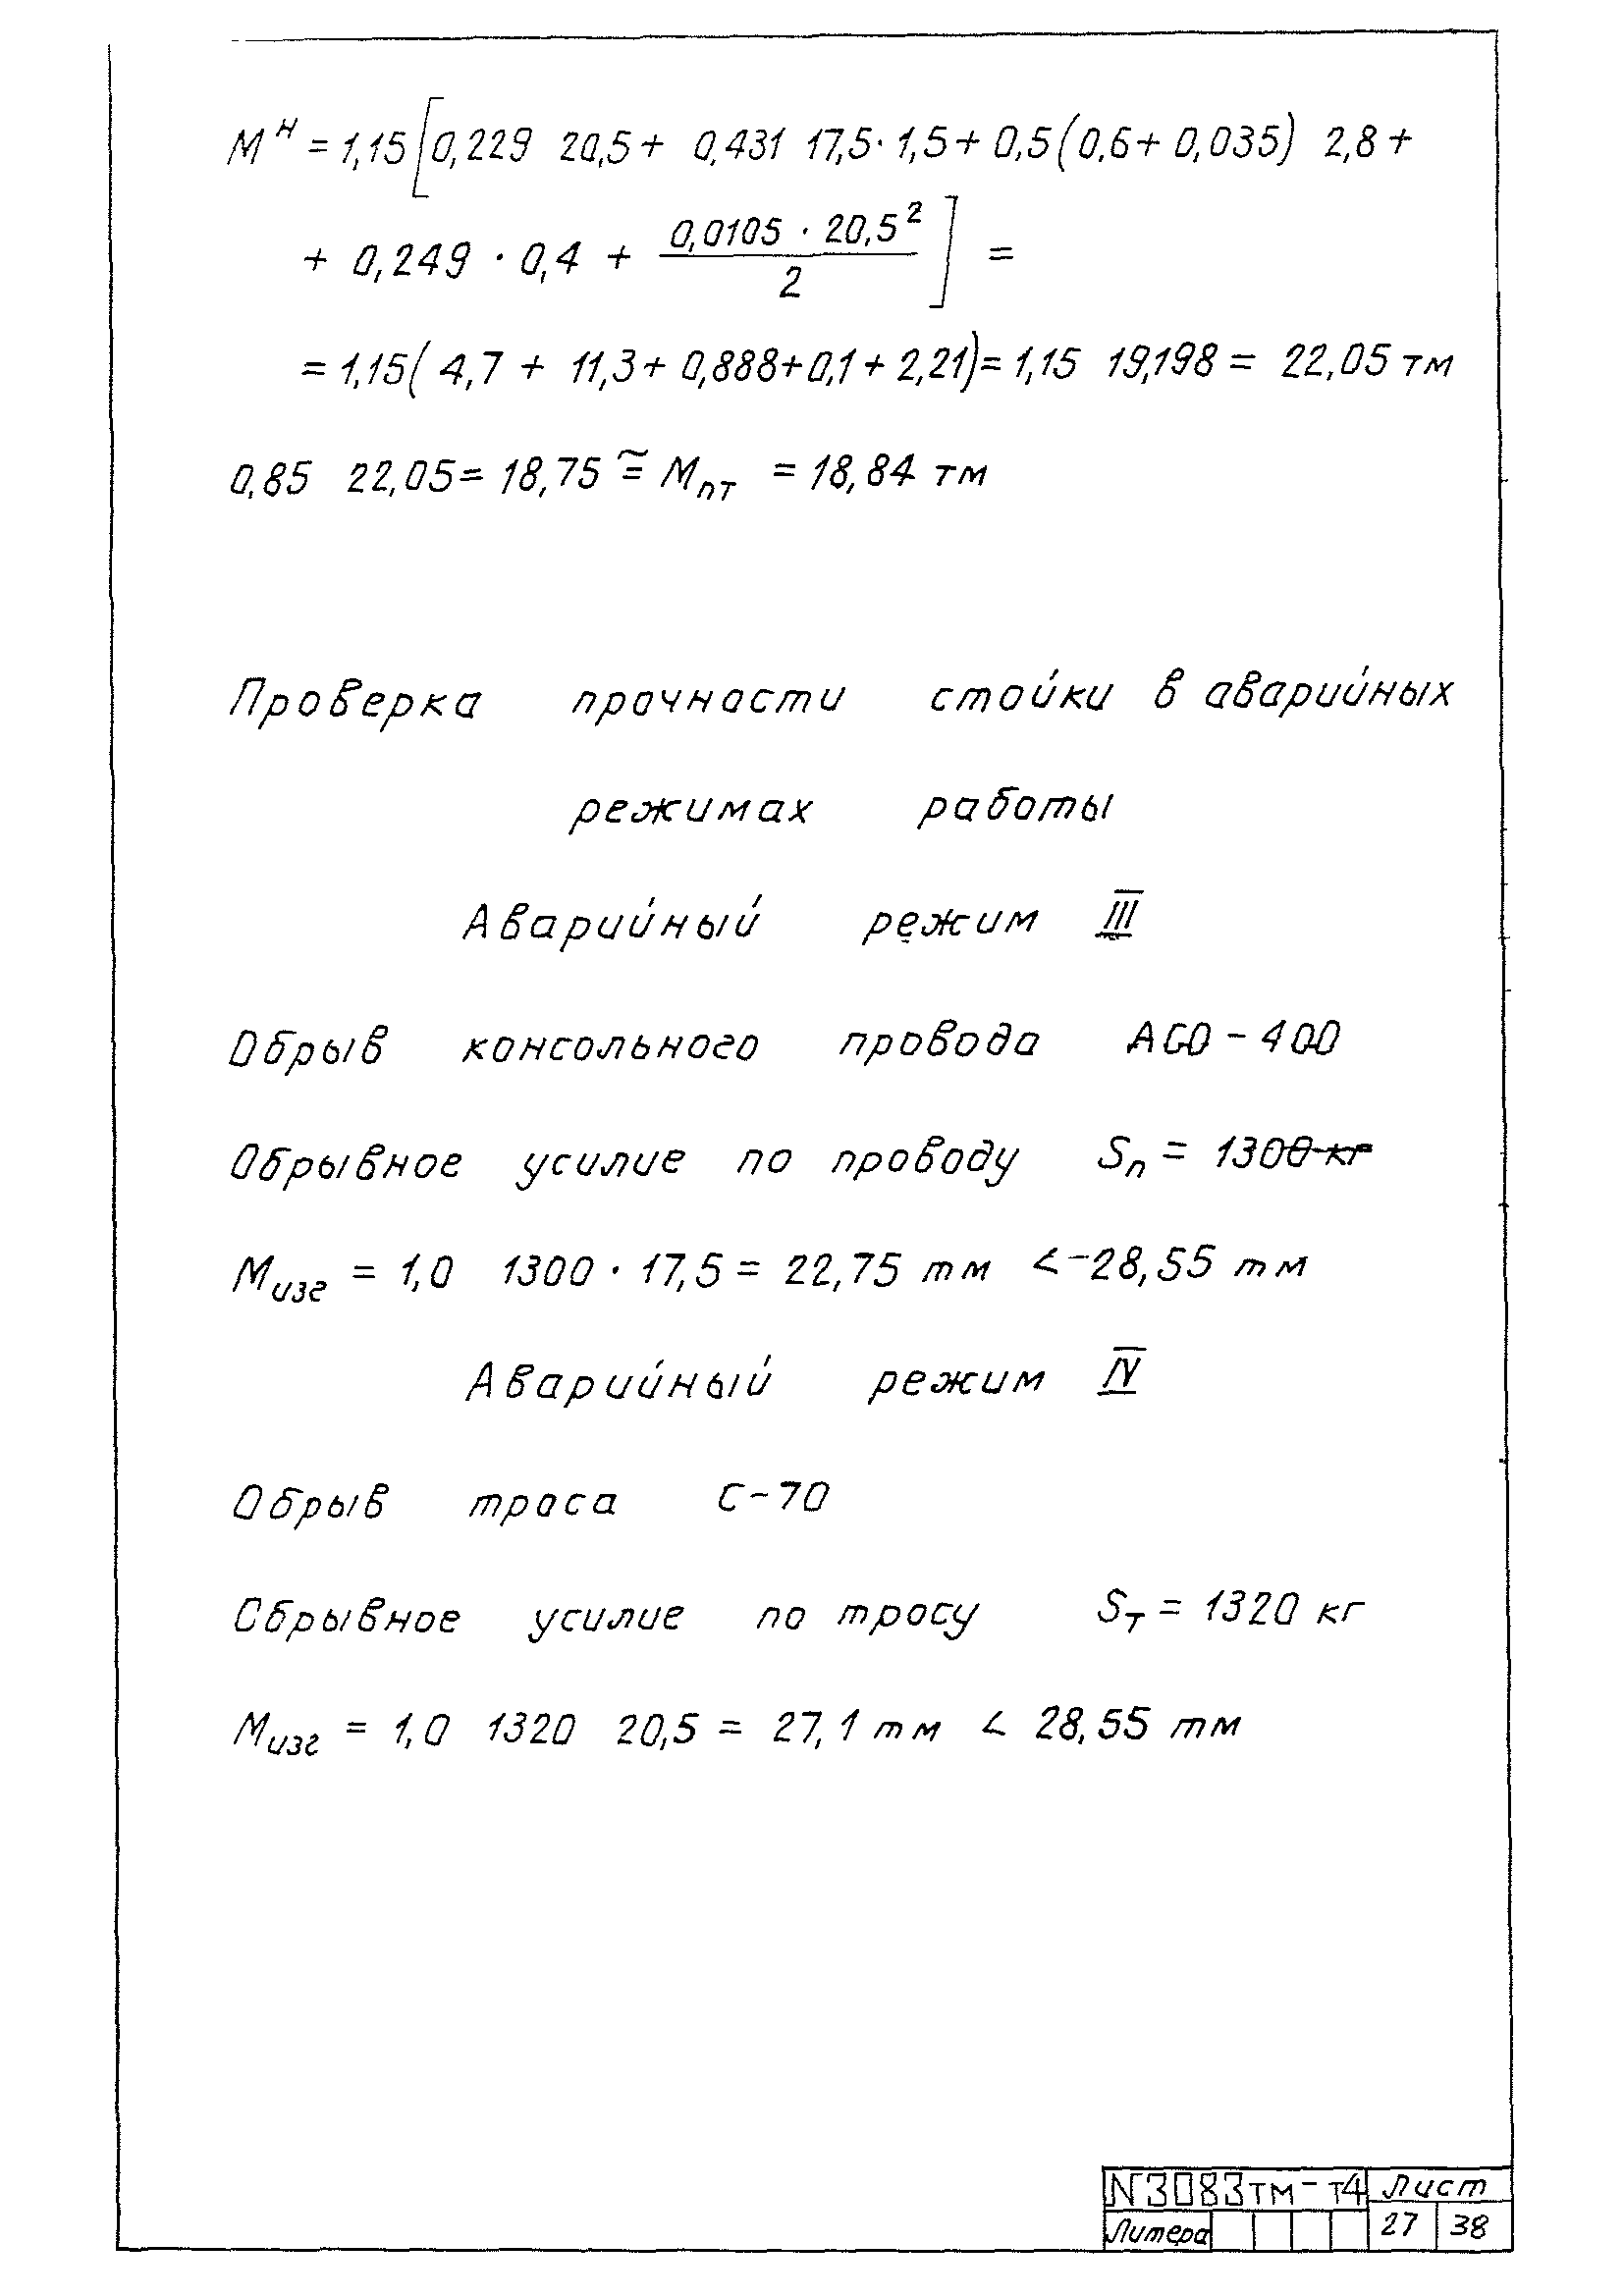 Mᴴ = 1,15[0,229 20,5 + 0,431 17,5 · 1,5 + 0,5(0,6 + 0,035) 2,8 +
+ 0,249 · 0,4 + 0,0105 · 20,5² / 2 ] =
= 1,15( 4,7 + 11,3 + 0,888 + 0,1 + 2,21) = 1,15 19,198 = 22,05 тм
0,85 22,05 = 18,75 ≅ Mпт = 18,84 тм
Проверка прочности стойки в аварийных
режимах работы
Аварийный режим III
Обрыв консольного провода АСО-400
Обрывное усилие по проводу Sп = 1300 кг
Mизг = 1,0 1300 · 17,5 = 22,75 тм < 28,55 тм
Аварийный режим IV
Обрыв троса С-70
Обрывное усилие по тросу Sт = 1320 кг
Mизг = 1,0 1320 20,5 = 27,1 тм < 28,55 тм
N3083тм-т4 Лист
Литера 27 38